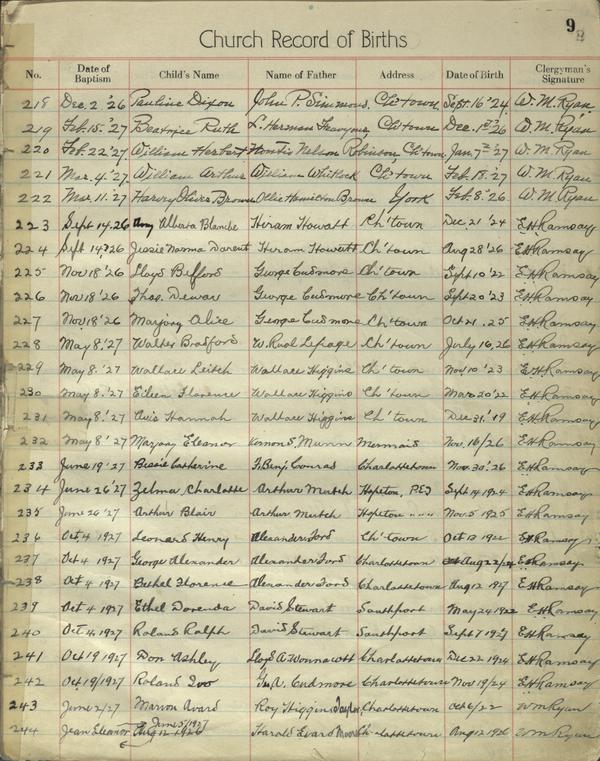 9
8
Church Record of Births
No. Date of Baptism Child's Name Name of Father Address Date of Birth Clergyman's Signature
218 Dec. 2 '26 Pauline Dixon John P. Simmons. Ch'town Sept. 16 '24 W. M. Ryan
219 Feb. 15. '27 Beatrice Ruth L. Herman Ch'town Dec. 1st '26 W. M. Ryan
220 Feb. 22 '27 William Herbert Nelson Robinson Ch'town Jan. 7th '27 W. M. Ryan
221 Mar. 4. '27 William Arthur William Whitlock Ch'town Feb. 18. '27 W. M. Ryan
222 Mar. 11. '27 Harvey Brown Ollie Hamilton Brown York Feb. 8. '26 W. M. Ryan
223 Sept 14. 26 Amy Alberta Blanche Hiram Howatt Ch'town Dec 21 '24 EHRamsay
224 Sept 14 '26 Jessie Norma Hiram Howatt Ch'town Aug 28 '26 EHRamsay
225 Nov 18 '26 Lloyd Bifford George Cudmore Ch'town Sept 10 '22 EHRamsay
226 Nov 18 '26 Thos. Dewar George Cudmore Ch'town Sept 20 '23 EHRamsay
227 Nov 18 '26 Marjory Alice George Cudmore Ch'town Oct 21. 25 EHRamsay
228 May 8. '27 Walter Bradford W. Raol Lepage Ch'town July 16, 26 EHRamsay
229 May 8. '27 Wallace Leitch Wallace Higgins Ch'town Nov 10 '23 EHRamsay
230 May 8. '27 Eileen Florence Wallace Higgins Ch'town Mar 20 '22 EHRamsay
231 May 8. '27 Avis Hannah Wallace Higgins Ch'town Dec 31. '19 EHRamsay
232 May 8' 27 Marjory Eleanor Vernon S Munn Mermaid Nov. 16/26 EHRamsay
233 June 19 '27 Bessie Catherine F. Benj. Conrad Charlottetown Nov. 30. '26 EHRamsay
234 June 26 '27 Zelma Charlotte Arthur Mutch Hopeton, PEI Sept 14 1924 EHRamsay
235 June 26 '27 Arthur Blair Arthur Mutch Hopeton " " " Nov. 5 1925 EHRamsay
236 Oct. 4 1927 Leonard Henry Alexander Ford Ch'town Oct 13 1922 EHRamsay
237 Oct 4 1927 George Alexander Alexander Ford Charlottetown Aug 22/24 EHRamsay
238 Oct 4 1927 Bethel Florence Alexander Ford Charlottetown Aug 12 1927 EHRamsay
239 Oct 4 1927 Ethel Dorenda David Stewart Southport May 24 1922 EHRamsay
240 Oct 4. 1927 Roland Ralph David Stewart Southport Sept 7 1927 EHRamsay
241 Oct 19 1927 Don Ashley Lloyd A Wonnacott Charlottetown Dec 22 1924 EHRamsay
242 Oct. 19/1927 Roland Ivo Geo. A. Cudmore Charlottetown Nov 19/24 EHRamsay
243 June 2/27 Marion Avard Roy Higgins Taylor, Charlottetown Oct 6/22 W M Ryan
June 5/1927
244 Jean Eleanor Aug 12 1926 Harold Evard Moore Charlottetown Aug 12 1926 W M Ryan